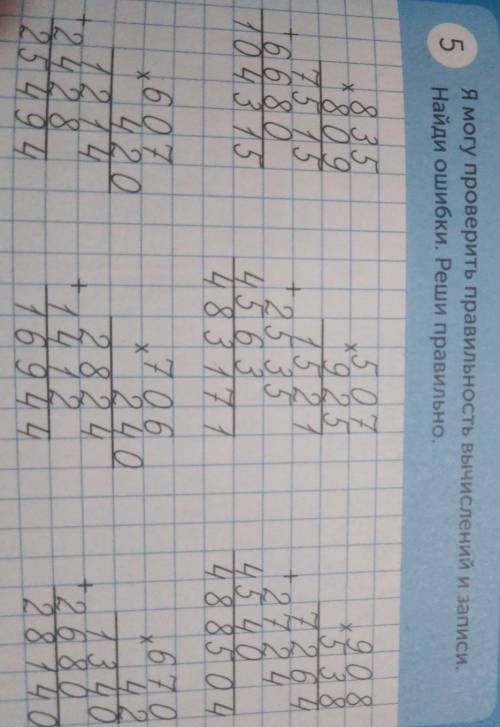 5 Я могу проверить правильность вычислений и записи.
Найди ошибки. Реши правильно.
× 835
809
7515
+ 6680
104315
× 507
925
1521
+ 2535
4563
483171
× 908
538
7264
+ 2724
4540
488504
× 607
420
1214
+ 2428
25494
× 706
240
2824
+ 1412
16944
× 670
42
1340
+ 2680
28140